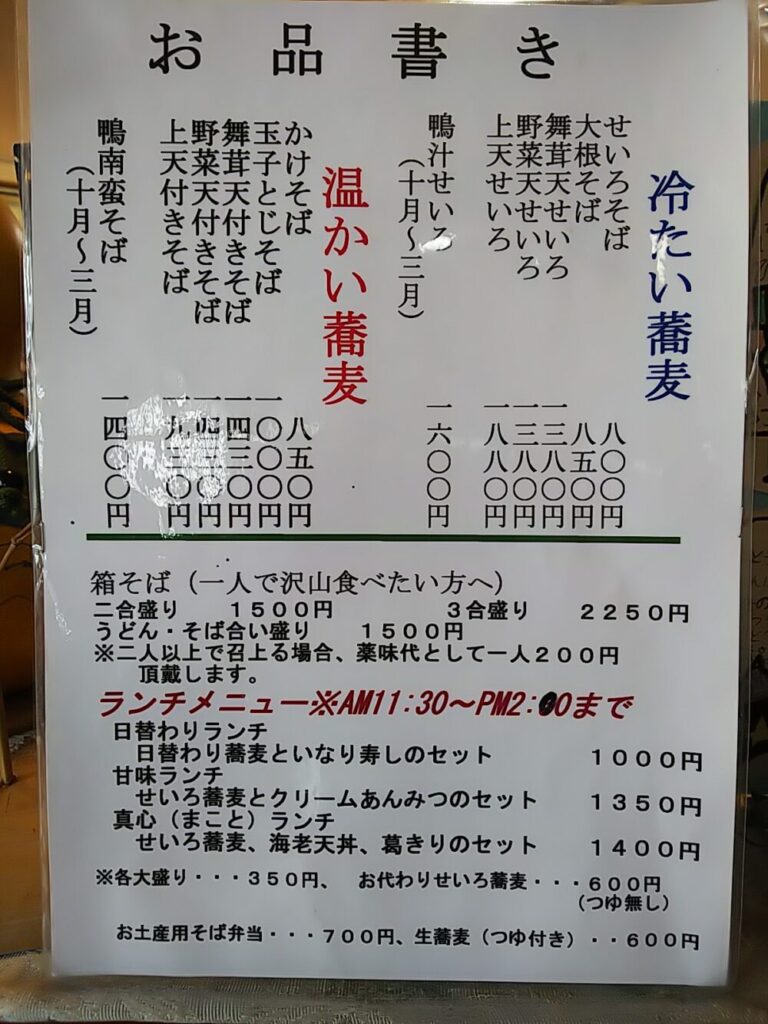 お品書き
冷たい蕎麦
せいろそば 八〇〇円
大根そば 八五〇円
舞茸天せいろ 一三八〇円
野菜天せいろ 一三八〇円
上天せいろ 一八八〇円
鴨汁せいろ 一六〇〇円
（十月～三月）
温かい蕎麦
かけそば 八五〇円
玉子とじそば 一〇〇〇円
舞茸天付きそば 一四三〇円
野菜天付きそば 一四三〇円
上天付きそば 一九三〇円
鴨南蛮そば 一四〇〇円
（十月～三月）
箱そば（一人で沢山食べたい方へ）
二合盛り １５００円 ３合盛り ２２５０円
うどん・そば合い盛り １５００円
※二人以上で召上る場合、薬味代として一人２００円
頂戴します。
ランチメニュー※AM11:30～PM2:00まで
日替わりランチ
日替わり蕎麦といなり寿しのセット １０００円
甘味ランチ
せいろ蕎麦とクリームあんみつのセット １３５０円
真心（まこと）ランチ
せいろ蕎麦、海老天丼、葛きりのセット １４００円
※各大盛り・・・３５０円、 お代わりせいろ蕎麦・・・６００円
（つゆ無し）
お土産用そば弁当・・・７００円、生蕎麦（つゆ付き）・・６００円